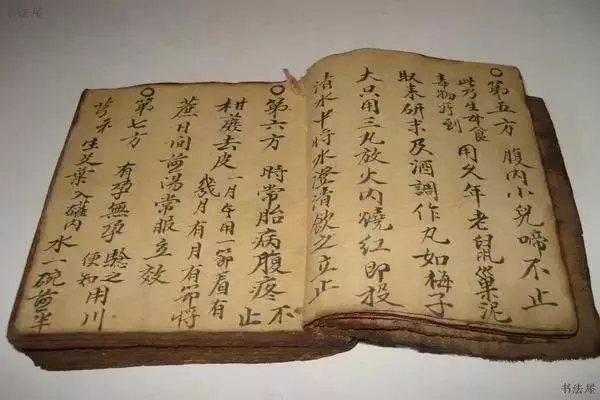 书法屋
○第五方 腹內小兒啼不止
此乃生母食
毒物所到
用久年老鼠巢泥
取末研末及酒調作丸如梅子
大只用三丸放火內燒紅即投
清水中將水澄清飲之立止
○第六方 時常胎病腹疼不止
柑蔗去皮 一月用一節看有
幾月有月有節將
蔗日間煎湯常服立效
○第七方 有孕無孕驗之便知用川
芎 生艾葉入罐內 水一碗煎半
书法屋